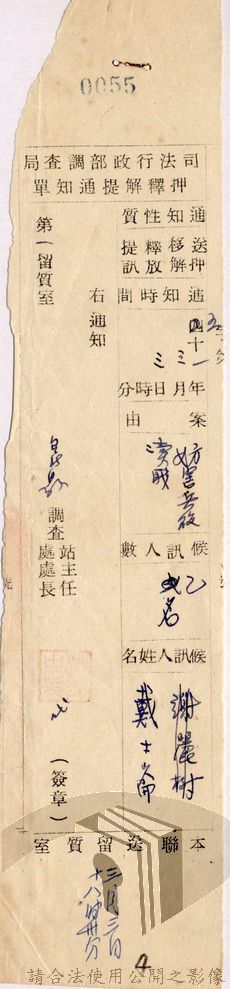 0055
司法行政部調查局
押釋解提通知單
通知性質
送押
移解
釋放
提訊
通知時間
五
四十一年三月三日時分
案由
妨害兵役
候訊人數
乙名
候訊人姓名
戴士
右通知
第一留質室
調查
站主任
處處長
(簽章)
本聯送留質室
三月三日
十八時卅分
4
請合法使用公開之影像